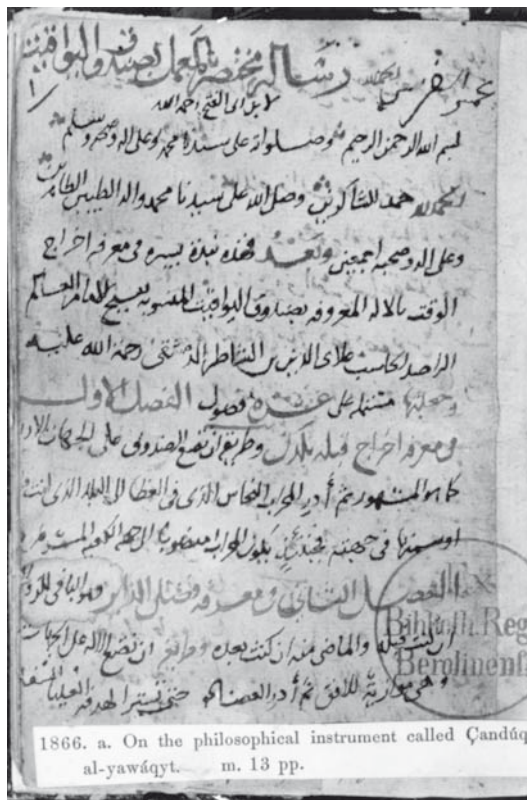 رسالة مختصرة بالعمل بصندوق اليواقيت
لابن ابى الفتح رحمه الله
بسم الله الرحمن الرحيم وصلواته على سيدنا محمد وعلى اله وصحبه وسلم
الحمد لله حمد الشاكرين وصلى الله على سيدنا محمد واله الطيبين الطاهرين
وعلى اله وصحبه اجمعين وبعد فهذه نبذة يسيره فى معرفه اخراج
الوقت بالاله المعروفه بصندوق اليواقيت المنسوبه للشيخ الامام العالم
الراصد الحاسب علاى الدين بن الشاطر الدمشقى رحمة الله عليه
وجعلتها مشتمله على عشرة فصول الفصل الاول
فى معرفه اخراج قبله بلدك وطريقه ان تضع الصندوق على الجهات
كما هو المشهور ثم أدر المحراب النحاس الذى فى الغطا الى البلد الذى انت
او سمتها فى جهته فحينئذ يكون المحراب منصوبا الى جهة الكعبه المشرفه
الفصل الثانى فى معرفه فضل الداير وهو الباقى للزوال
ان كنت قبله والماضى منه ان كنت بعده وطريقه ان تضع الاله على الجهات
وهى موازية للافق ثم أدر العضاده حتى تستتر الهدفه العليا
Ex
Biblioth. Reg
Berolinens
1866. a. On the philosophical instrument called Çandúq
al-yawáqyt. m. 13 pp.